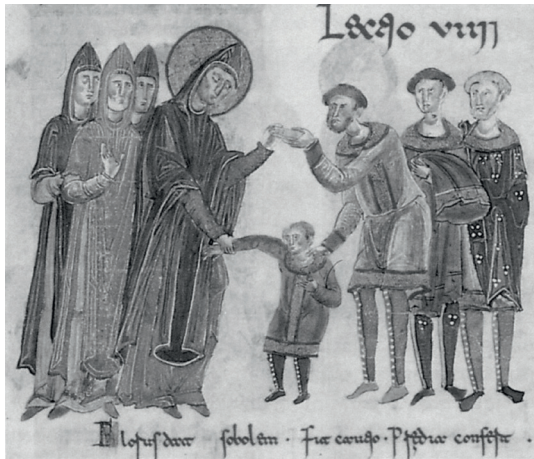 Lectio viiij
Florus dat sobolem · Fit cautio · Predia confert ·